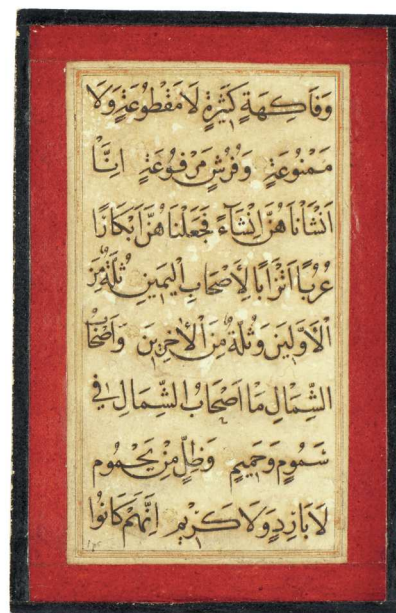 وَفَاكِهَةٍ كَثِيرَةٍ لَا مَقْطُوعَةٍ وَلَا
مَمْنُوعَةٍ وَفُرُشٍ مَرْفُوعَةٍ اِنَّا
اَنْشَأْنَاهُنَّ اِنْشَآءً فَجَعَلْنَاهُنَّ اَبْكَارًا
عُرُبًا اَتْرَابًا لِاَصْحَابِ الْيَمِينِ ثُلَّةٌ مِنَ
الْاَوَّلِينَ وَثُلَّةٌ مِنَ الْاٰخِرِينَ وَاَصْحَابُ
الشِّمَالِ مَا اَصْحَابُ الشِّمَالِ فِي
سَمُومٍ وَحَمِيمٍ وَظِلٍّ مِنْ يَحْمُومٍ
لَا بَارِدٍ وَلَا كَرِيمٍ اِنَّهُمْ كَانُوا